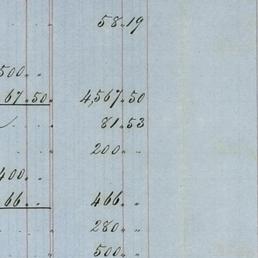 58.19
500. .
67.50. 4,567.50
81.53
200. .
400. .
66. . 466. .
280. .
500. .